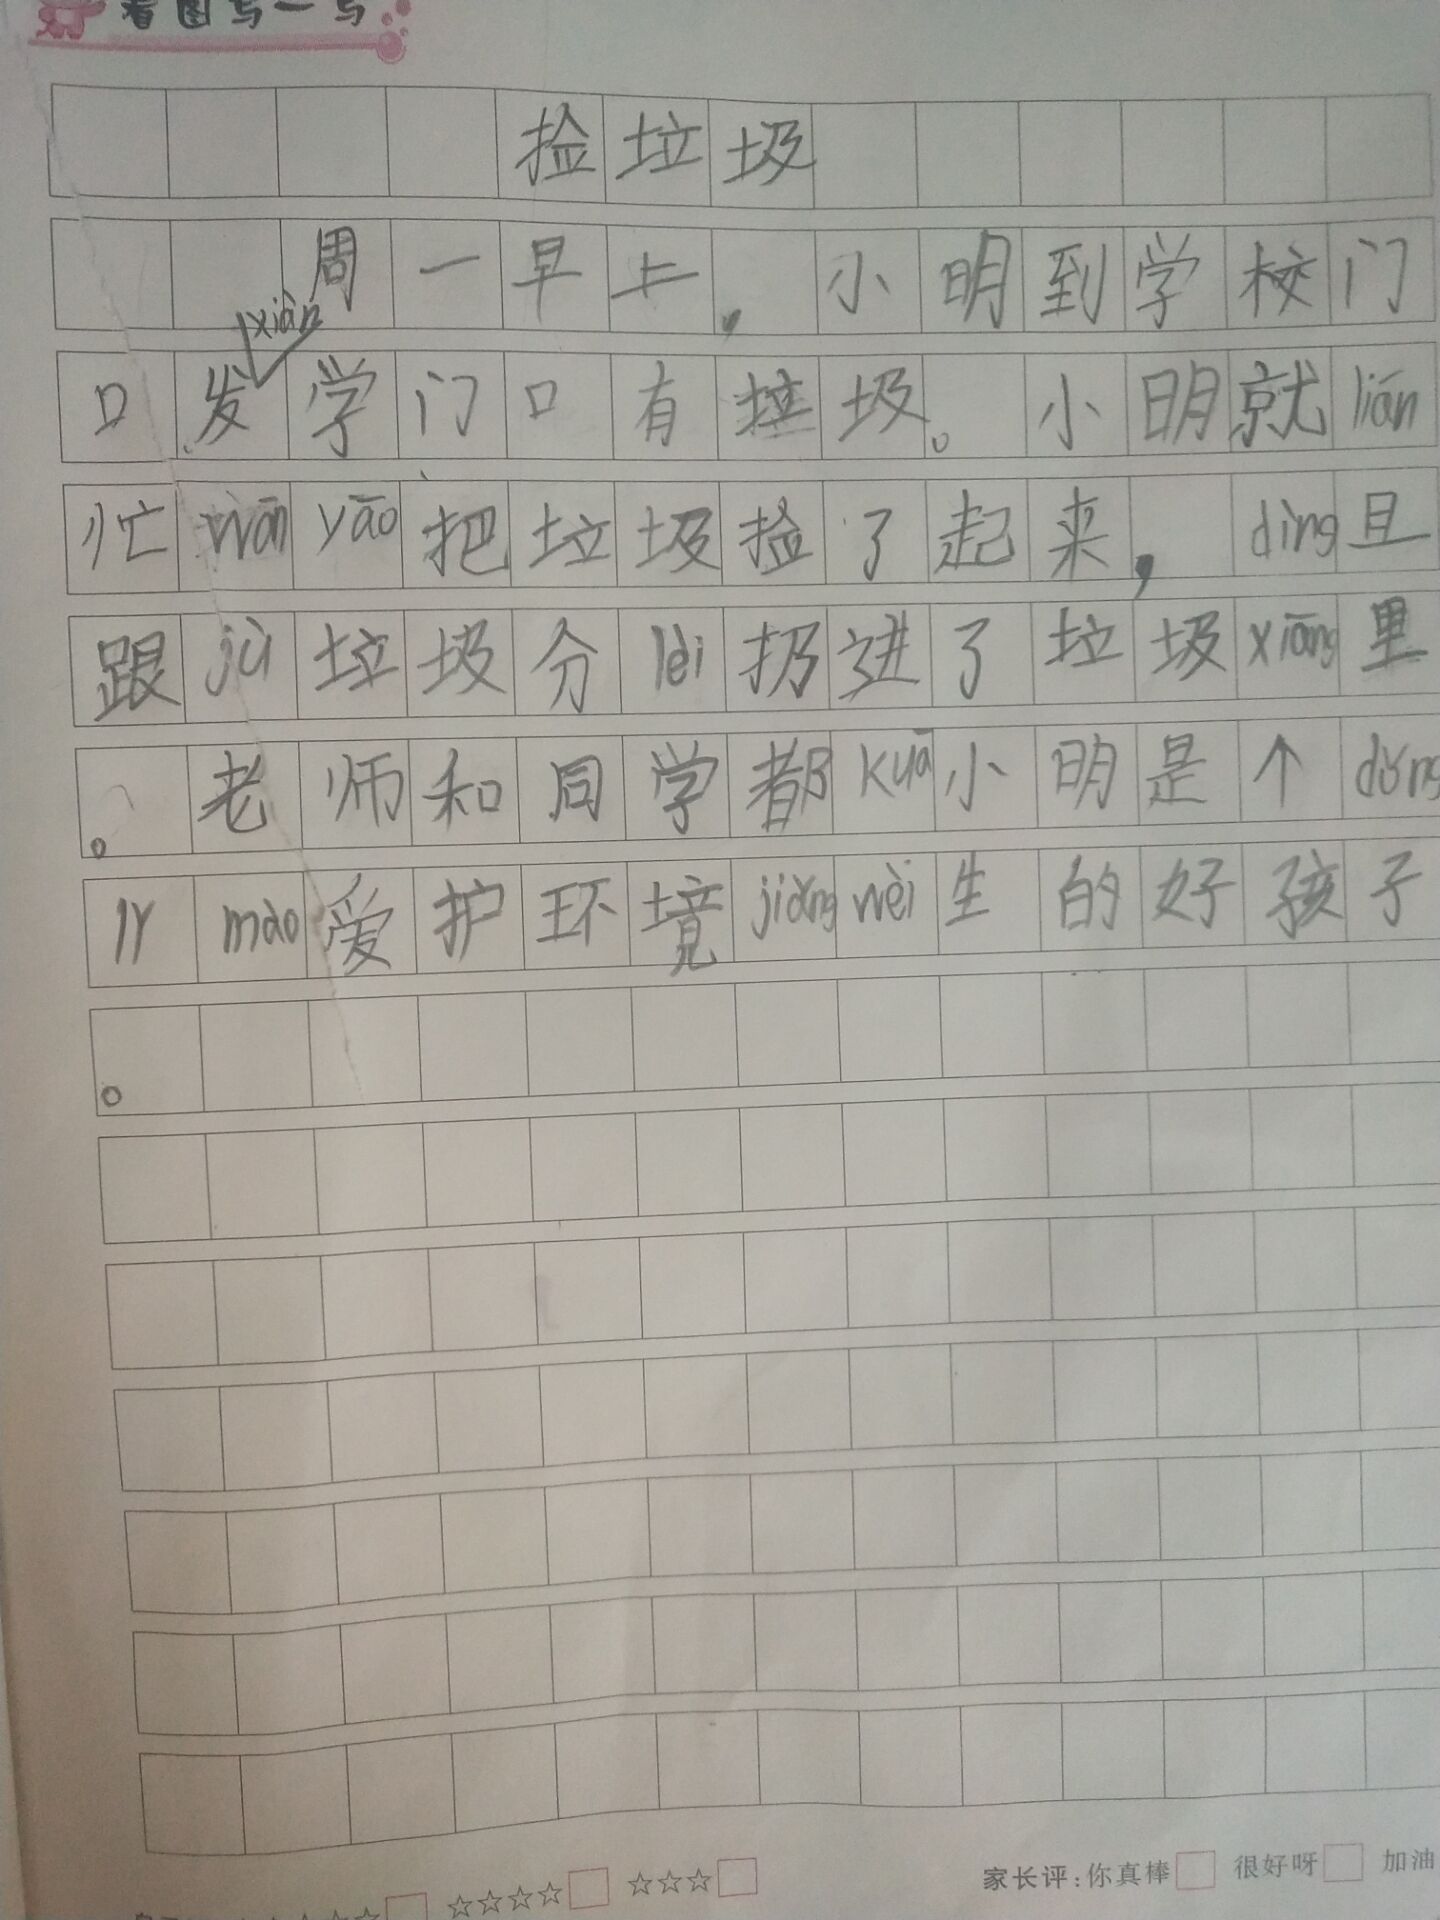 看图写一写
捡垃圾
周一早上，小明到学校门
xiàn
口，发学门口有垃圾。小明就lián
忙wān yāo把垃圾捡了起来，dìng且
跟jù垃圾分lèi扔进了垃圾xiāng里
。老师和同学都kuā小明是个dǒng
mào爱护环境jiǎng wèi生的好孩子
。
☆☆☆☆ ☆☆☆ 家长评：你真棒 很好呀 加油